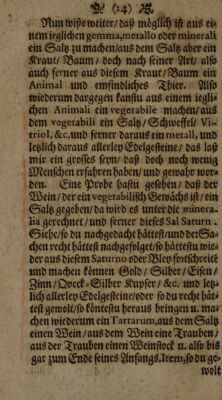 (24)
Nun wisse weiter/ daß möglich ist aus ei-
nem ieglichen gemma, metallo oder minerali
ein Saltz zu machen/ aus dem Saltz aber ein
Kraut/ Baum/ doch nach seiner Art/ also
auch ferner aus diesem Kraut/ Baum ein
Animal und empfindliches Thier. Also
wiederum dargegen kanstu aus einem ieglI-
chen Animali ein vegetabile machen/ aus
dem vegetabili ein Saltz/ Schweffel/ Vi-
triol, &c. und ferner daraus ein metall, und
letzlich daraus allerley Edelgesteine/ das laß
mir ein grosses seyn/ daß doch noch wenig
Menschen erfahren haben/ und gewahr wor-
den. Eine Probe hastu gesehen/ daß der
Wein/ der ein vegetabilisch Gewächs ist/ ein
Saltz gegeben/ da wird es unter die minera-
lia gerechnet/ und ferner dieses Sal Saturn.
Siehe/ so du nachgedacht hättest/ und der Sa-
chen recht hättest nachgefolget/ so hättestu wie-
der aus diesem Saturno oder Bley fortschreitē
und machen können Gold/ Silber/ Eisen/
Zinn/ Qveck-Silber Kupfer/ &c. und letz-
lich allerley Edelgesteine/ oder so du recht hät-
test gewolt/ so köntestu heraus bringen u. ma-
chen wiederum ein Tartarum, aus dem Saltz
einen Wein/ aus dem Wein eine Trauben/
aus der Trauben einen Weinstock u. also bis
gar zum Ende seines Anfangs. Item, so du ge-
wolt